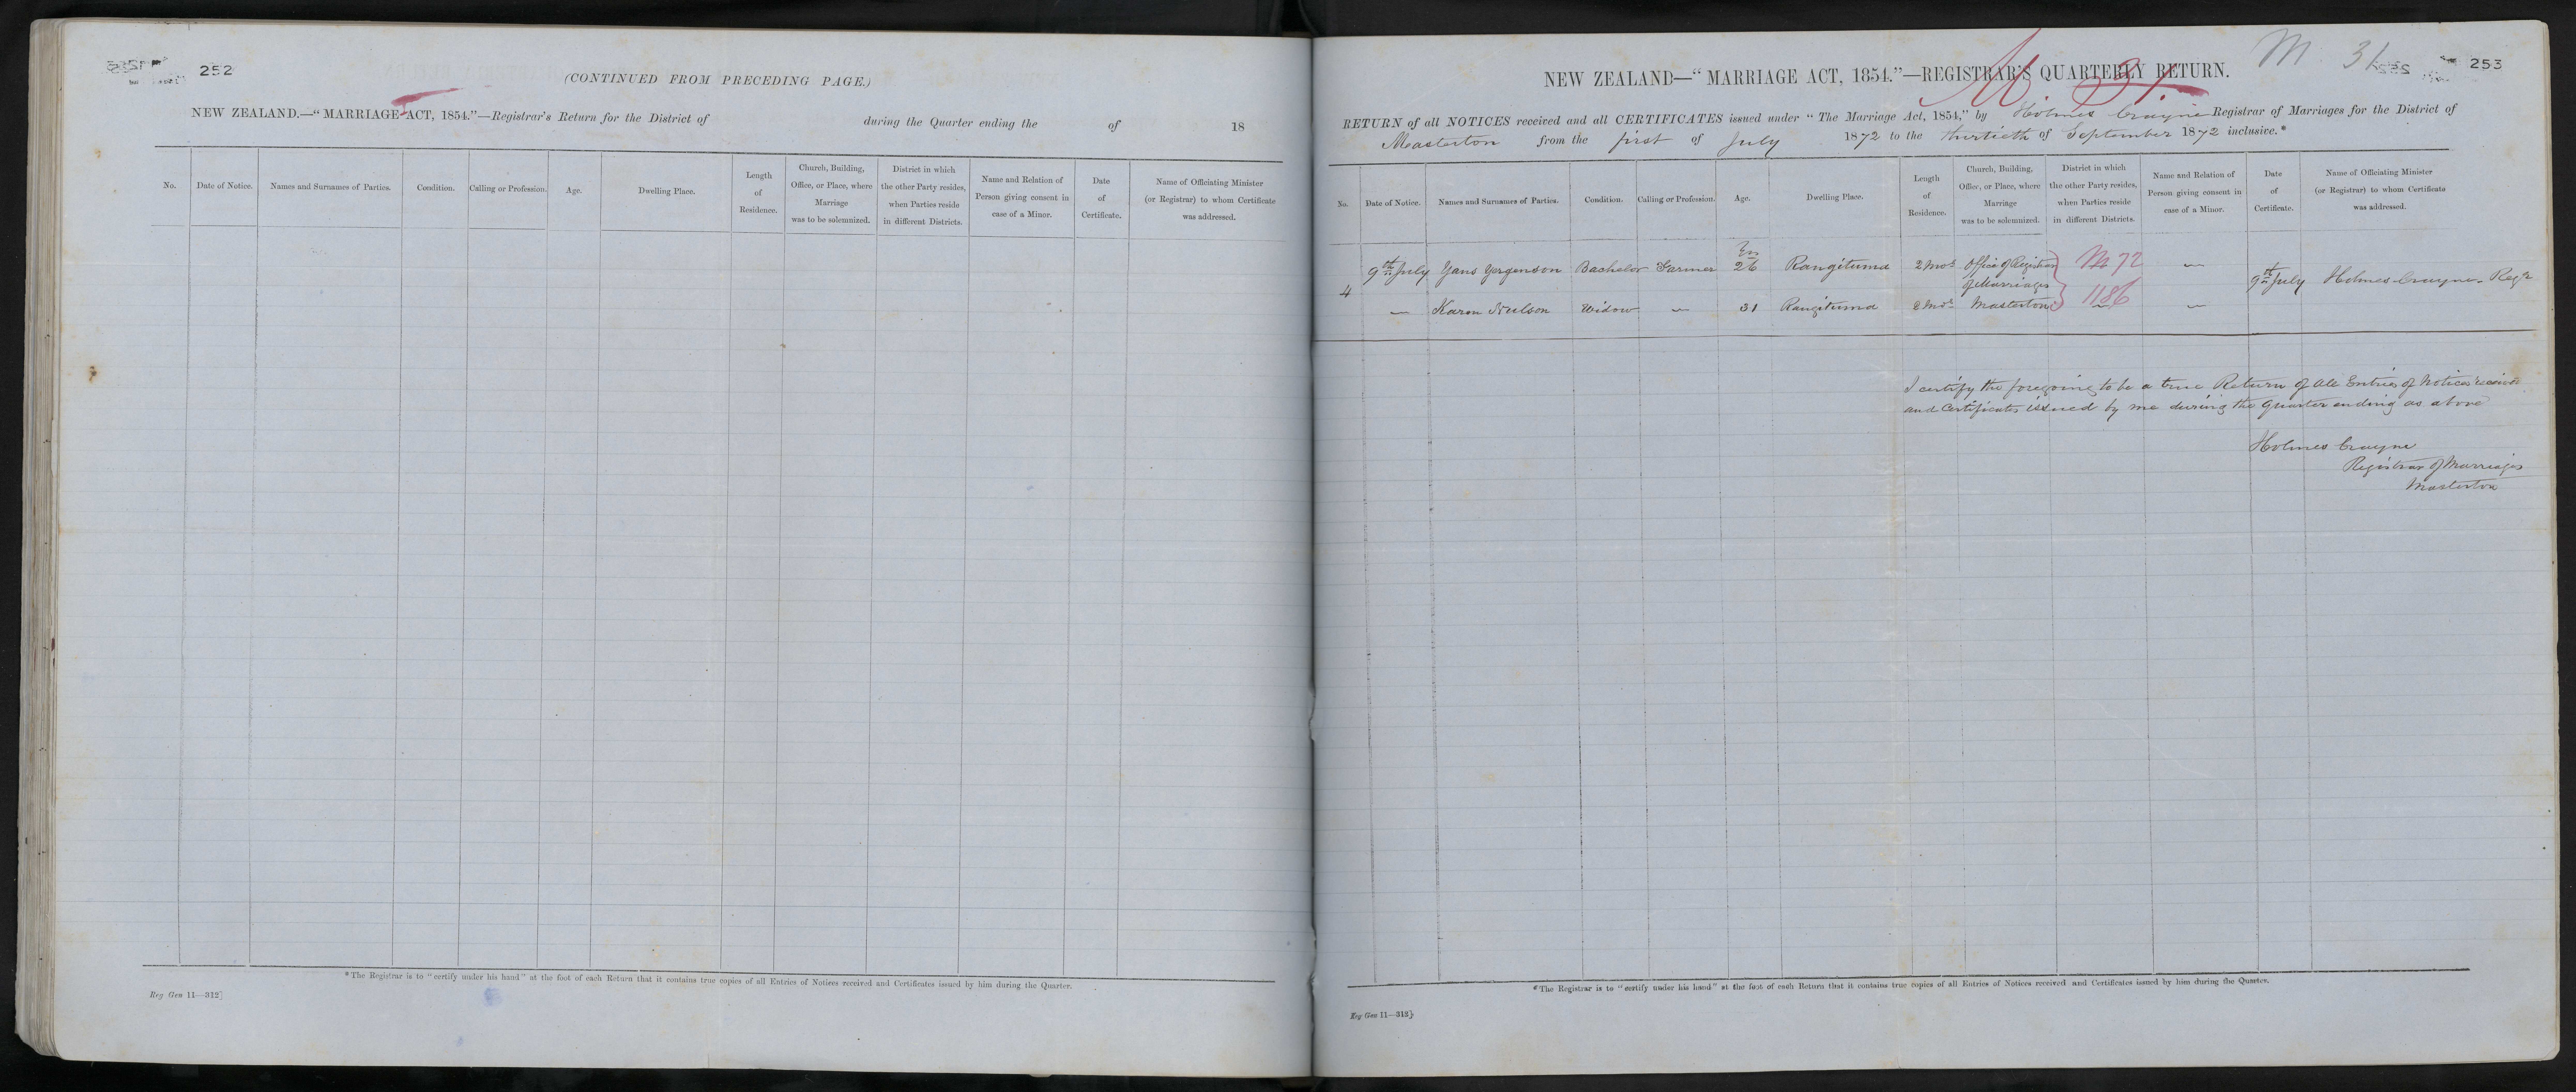 252
(CONTINUED FROM PRECEDING PAGE.)
NEW ZEALAND.—“MARRIAGE ACT, 1854.”—Registrar's Return for the District of during the Quarter ending the of 18
No.
Date of Notice.
Names and Surnames of Parties.
Condition.
Calling or Profession.
Age.
Dwelling Place.
Length
of
Residence.
Church, Building,
Office, or Place, where
Marriage
was to be solemnized.
District in which
the other Party resides,
when Parties reside
in different Districts.
Name and Relation of
Person giving consent in
case of a Minor.
Date
of
Certificate.
Name of Officiating Minister
(or Registrar) to whom Certificate
was addressed.
*The Registrar is to “certify under his hand” at the foot of each Return that it contains true copies of all Entries of Notices received and Certificates issued by him during the Quarter.
Reg Gen 11—312]
M 31
253
NEW ZEALAND—“MARRIAGE ACT, 1854.”—REGISTRAR'S QUARTERLY RETURN.
M. 31.
RETURN of all NOTICES received and all CERTIFICATES issued under “The Marriage Act, 1854,” by Holmes Crayne Registrar of Marriages for the District of
Masterton from the first of July 1872 to the thirtieth of September 1872 inclusive.*
No.
Date of Notice.
Names and Surnames of Parties.
Condition.
Calling or Profession.
Age.
Dwelling Place.
Length
of
Residence.
Church, Building,
Office, or Place, where
Marriage
was to be solemnized.
District in which
the other Party resides,
when Parties reside
in different Districts.
Name and Relation of
Person giving consent in
case of a Minor.
Date
of
Certificate.
Name of Officiating Minister
(or Registrar) to whom Certificate
was addressed.
4 9th July Yans Yorgenson Bachelor Farmer 26 Rangituma 2 mos Office of Registrar M 72 — 9th July Holmes Crayne Regr
of Marriages
— Karen Neilson Widow — 31 Rangituma 2 mos Masterton 1186 —
I certify the foregoing to be a true Return of all Entries of Notices received
and Certificates issued by me during the Quarter ending as above
Holmes Crayne
Registrar of Marriages
Masterton
*The Registrar is to “certify under his hand” at the foot of each Return that it contains true copies of all Entries of Notices received and Certificates issued by him during the Quarter.
Reg Gen 11—313]